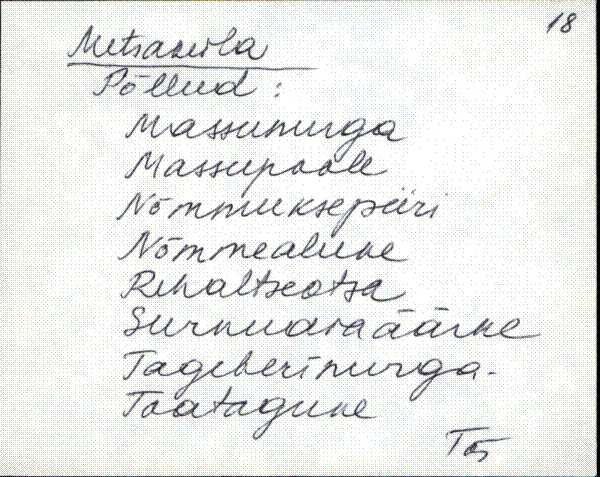 18
Metsavila
Põllud :
Massunurga
Massupoole
Nõmmuksepiiri
Nõmmealune
Rehaltseotsa
Surnuaiaäärne
Tageberinurga-
Toatagune